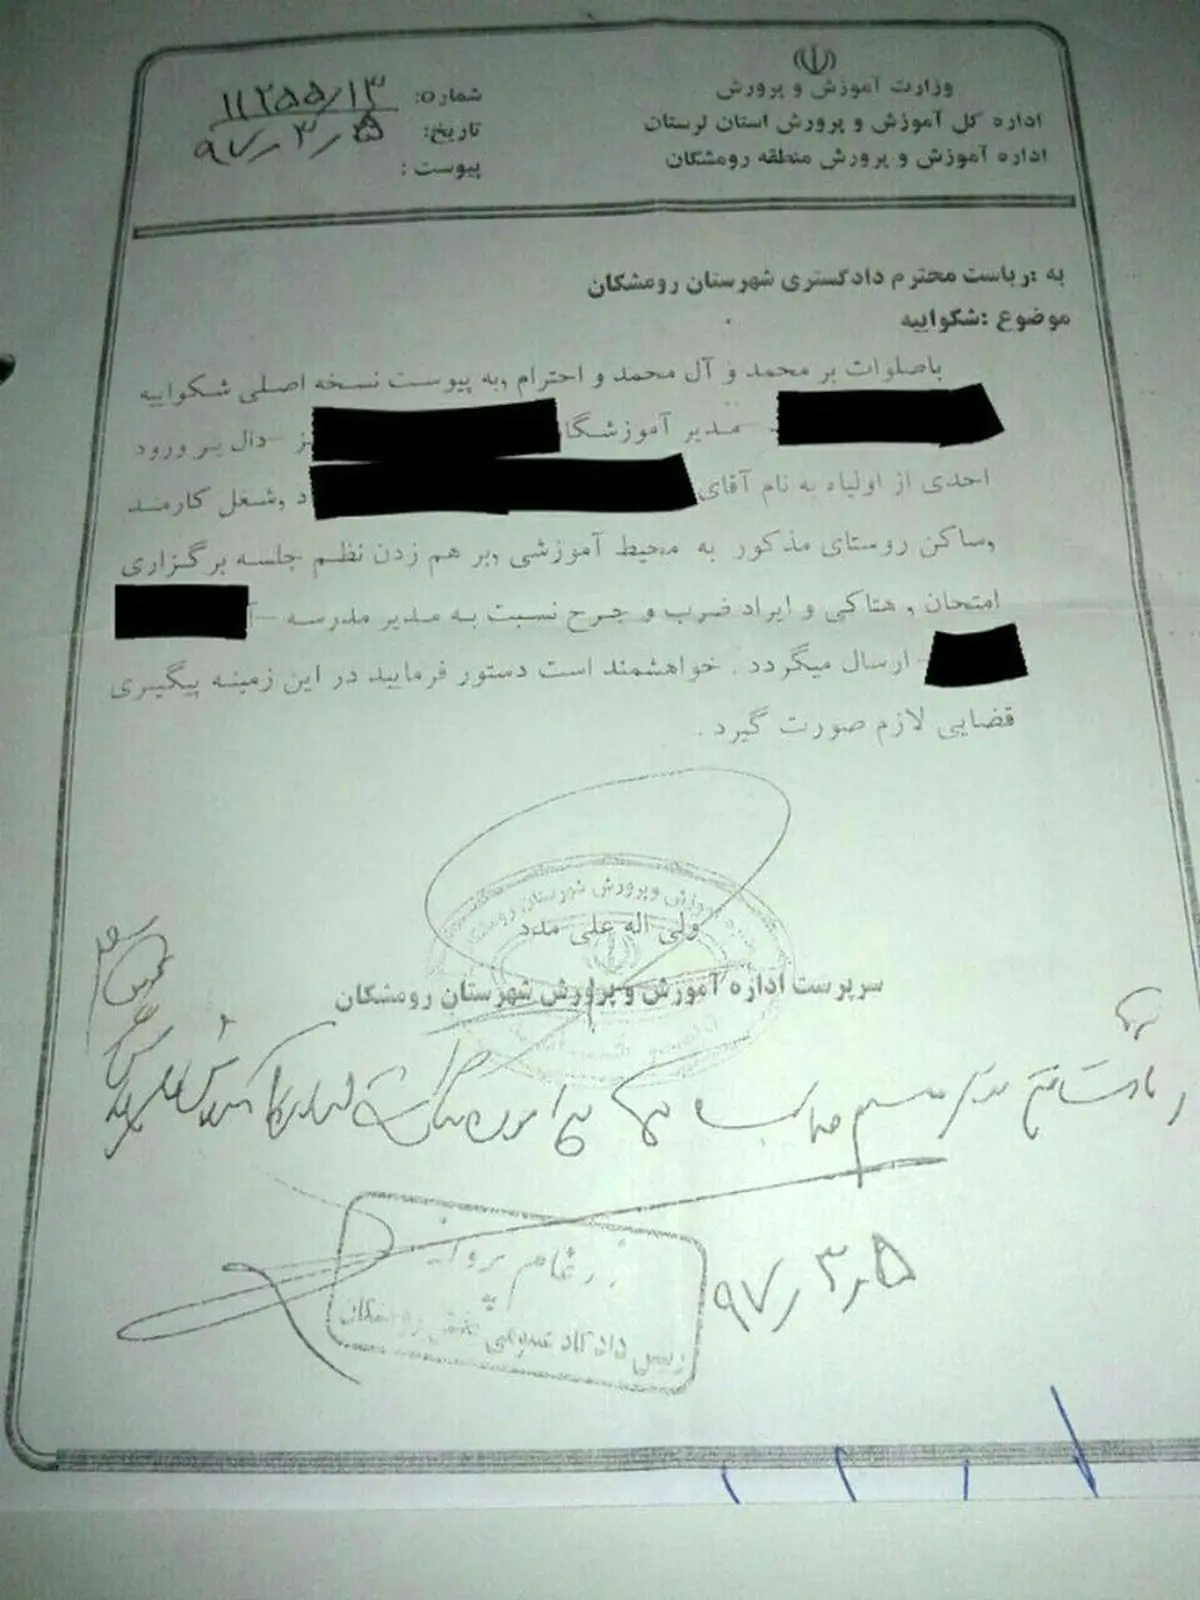 وزارت آموزش و پرورش
اداره کل آموزش و پرورش استان لرستان
اداره آموزش و پرورش منطقه رومشکان
شماره: ۱۱۲۵۵/۱۳
تاریخ: ۹۷/۳/۵
پیوست:
به :ریاست محترم دادگستری شهرستان رومشکان
موضوع :شکواییه
باصلوات بر محمد و آل محمد و احترام ,به پیوست نسخه اصلی شکواییه
مدیر آموزشگا ز -دال بر ورود
احدی از اولیاء به نام آقای د ,شغل کارمند
,ساکن روستای مذکور به محیط آموزشی ,بر هم زدن نظم جلسه برگزاری
امتحان , هتاکی و ایراد ضرب و جرح نسبت به مدیر مدرسه –
ارسال میگردد . خواهشمند است دستور فرمایید در این زمینه پیگیری
قضایی لازم صورت گیرد .
ولی اله علی مدد
سرپرست اداره آموزش و پرورش شهرستان رومشکان
۹۷/۳/۵
رئیس دادگاه عمومی بخش رومشکان